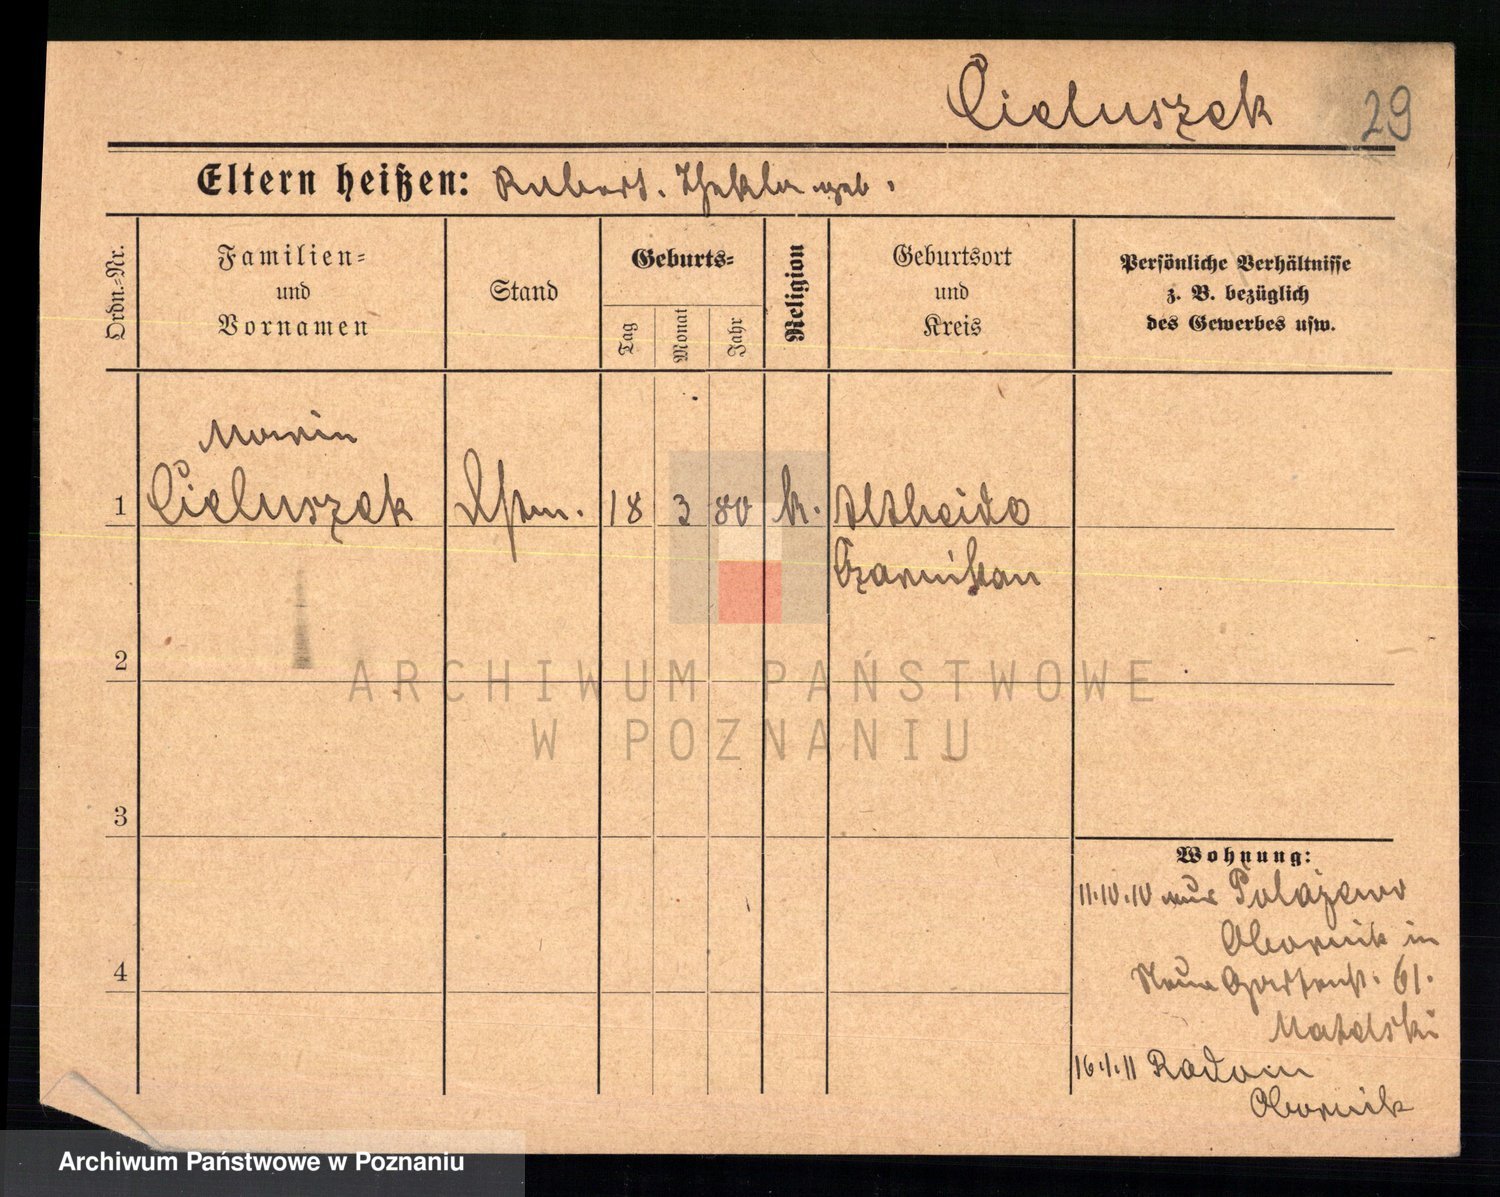 Cieluszek 29
Eltern heißen: Robert. Thekla geb.
Ordn.-Nr.
Familien-
und
Vornamen
Stand
Geburts-
Tag
Monat
Jahr
Religion
Geburtsort
und
Kreis
Persönliche Verhältnisse
z. B. bezüglich
des Gewerbes usw.
Maria
1 Cieluszek 18 3 80 k. Altheide
Czarnikau
2
3
4
Wohnung:
11.10.10 aus Polajewo
Obornik in
Neue Gartenst. 61.
Matelski
16.1.11 Radom
Obornik
ARCHIWUM PAŃSTWOWE
W POZNANIU
Archiwum Państwowe w Poznaniu